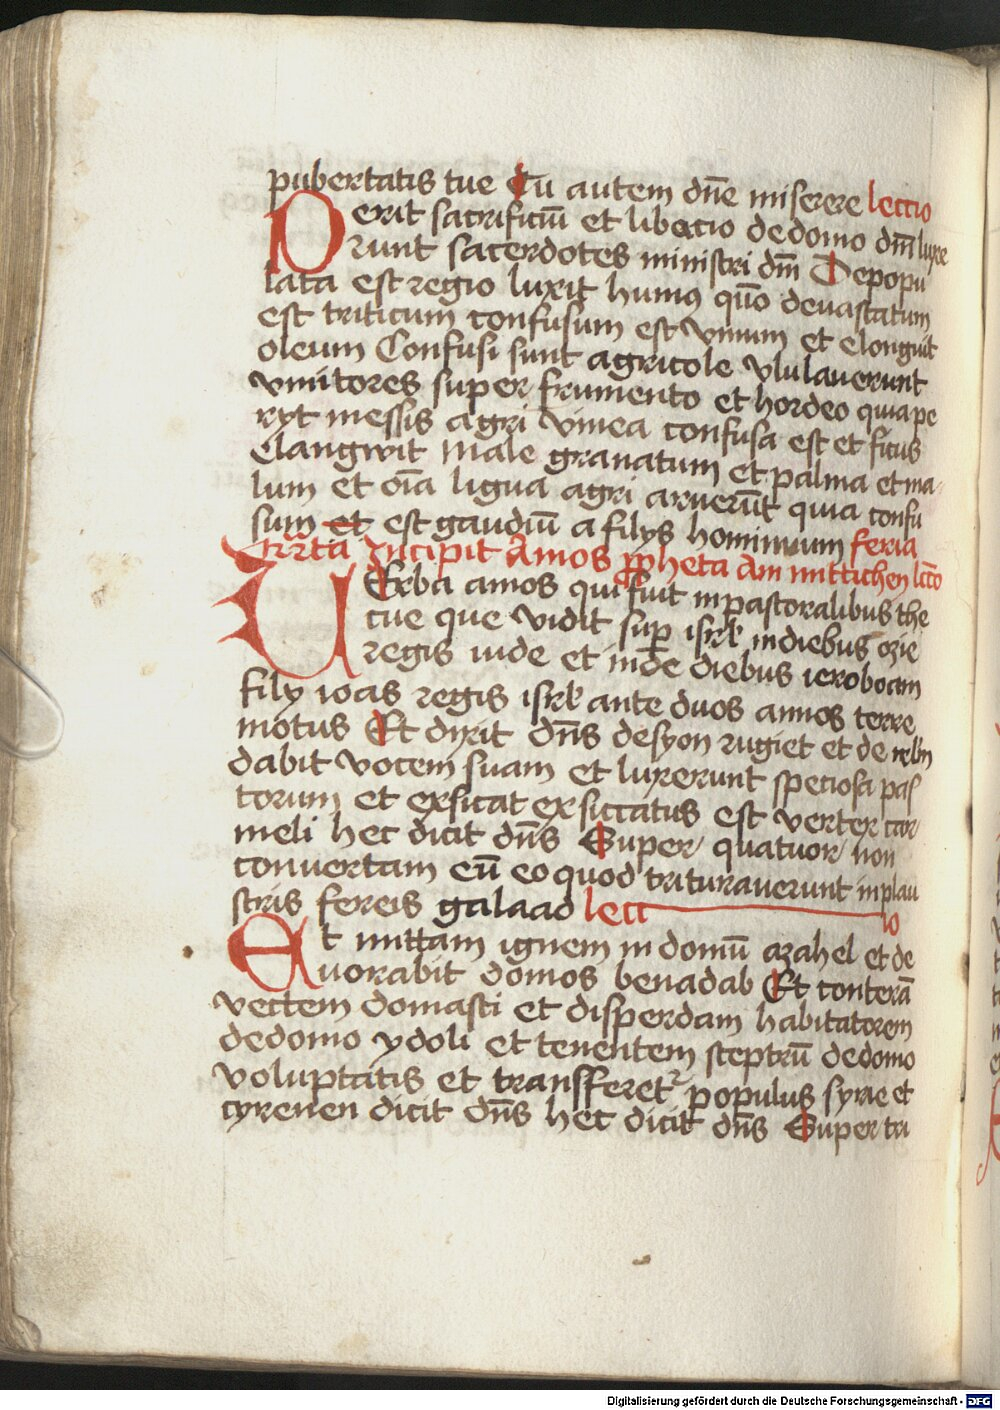 pubertatis tue Tu autem dn̄e miserere lectio
Perit sacrificiū et libacio de domo dnī luxe
runt sacerdotes ministri dnī Depopu
lata est regio luxit humus quō deuastatum
est triticum confusum est vinum et elonguit
oleum Confusi sunt agricole vlulauerunt
vinitores super frumento et hordeo quia pe
ryt messis agri vinea confusa est et ficus
elangwit Male granatum et palma et ma
lum et oīa ligna agri aruerūt quia confu
sum et est gaudiū a filys hominium feria
quarta Incipit Amos ppheta Am mittichen lcto
VErba amos qui fuit in pastoralibus the
cue que vidit sup isrł in diebus ozie
regis iude et in de diebus ieroboam
fily ioas regis isrł ante duos annos terre
motus Et dixit dn̄s de syon rugiet et de irlm
dabit vocem suam et luxerunt speciosa pas
torum et exsicat exsiccatus est verter car
meli hec dicit dn̄s Super quatuor non
conuertam eū eo quod triturauerunt in plau
stris fereis galaad lect
io
Et mittam ignem in domū azahel et de
uorabit domos benadab Et conterā
vectem domasti et disperdam habitatorem
de domo ydoli et tenentem sceptrū de domo
voluptatis et transfferet² populus syrie et
cyrenen dicit dn̄s hec dicit dn̄s Super tri
Digitalisierung gefördert durch die Deutsche Forschungsgemeinschaft - DFG